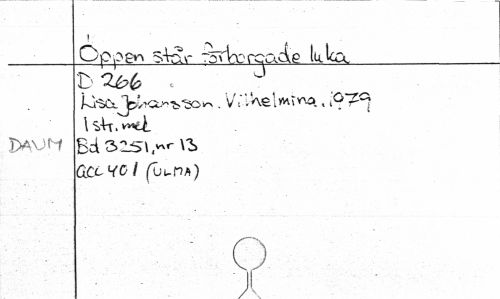 Öppen står förborgade luka
D 266
Lisa Johansson. Vilhelmina. 1979
1 str. mel
DAUM Bd 3251, nr 13
acc 401 (ULMA)